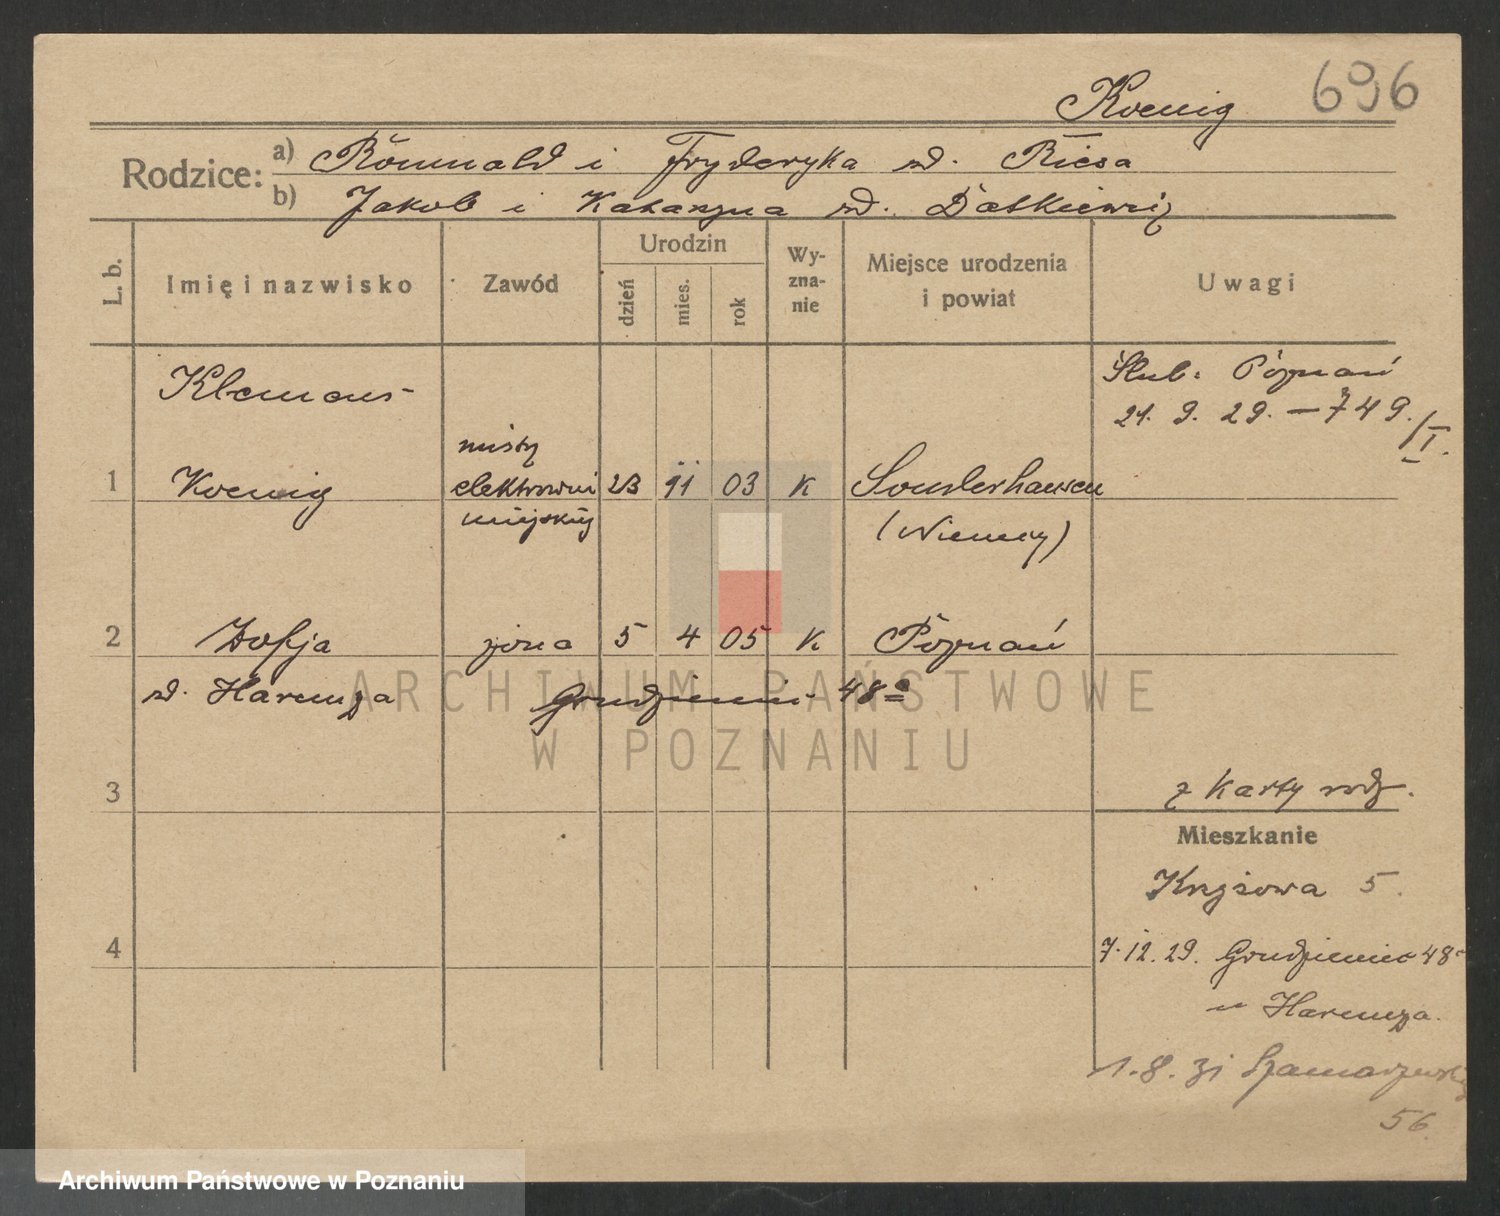 Koenig 696
Rodzice: a) Romuald i Fryderyka zd. Riesa
b) Jakob i Katarzyna zd. Datkiewicz
L. b. Imię i nazwisko Zawód Urodzin dzień mies. rok Wyznanie Miejsce urodzenia i powiat Uwagi
Klemens
Ślub: Poznań
21. 9. 29. — 749./I.
1 Koenig elektrowni miejskiej 23 11 03 K Sonderhausen
(Niemcy)
2 Zofja żona 5 4 05 K Poznań
zd. Haremza Grudzieniec 48a
3 z karty rodz.
Mieszkanie
Krzyżowa 5.
4 7.12.29. Grudzieniec 48
u Haremza.
1.8.31 Szamarzewskiego
56.
ARCHIWUM PAŃSTWOWE
W POZNANIU
Archiwum Państwowe w Poznaniu